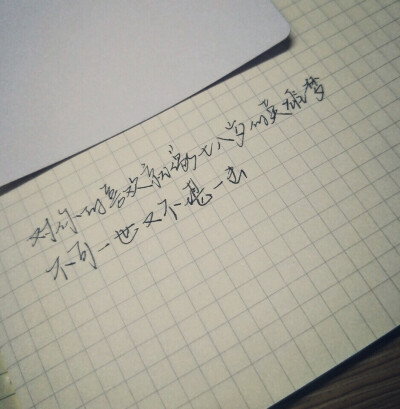 对你的喜欢就像七八岁的英雄梦
不可一世又不堪一击